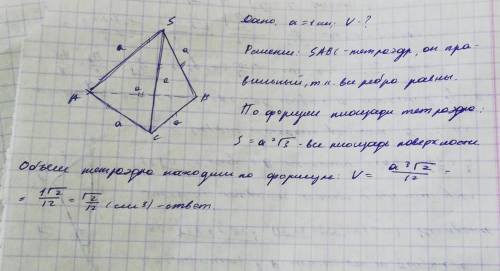 S
Дано: a=1см; V-?
a a
Решение: SABC-тетраэдр, он пра-
a
A B
вильный, т.к. все ребра равны.
a a
По формуле площади тетраэдра:
C
S = a²√3 - все площадь поверхности
Объем тетраэдра находим по формуле: V = a³√2/12 =
= 1√2/12 = √2/12 (см3) - ответ.